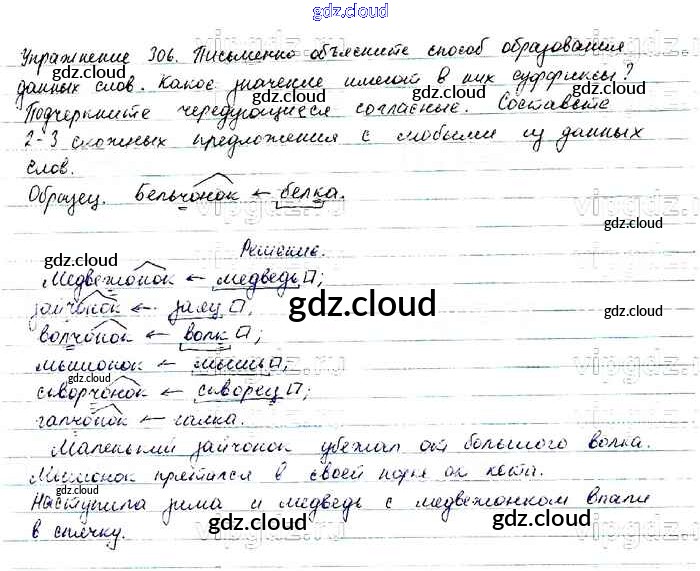 gdz.cloud
Упражнение 306. Письменно объясните способ образования
данных слов. Какое значение имеют в них суффиксы?
Подчеркните чередующиеся согласные. Составьте
2-3 сложных предложения с любыми из данных
слов.
Образец. Бельчонок ← белка.
Решение.
Медвежонок ← медведь□;
зайчонок ← заяц□;
волчонок ← волк□;
мышонок ← мышь□;
скворчонок ← скворец□;
галчонок ← галка.
Маленький зайчонок убежал от большого волка.
Мышонок прятался в своей норке от кота.
Наступила зима и медведь с медвежонком впали
в спячку.
gdz.cloud
vipgdz.ru